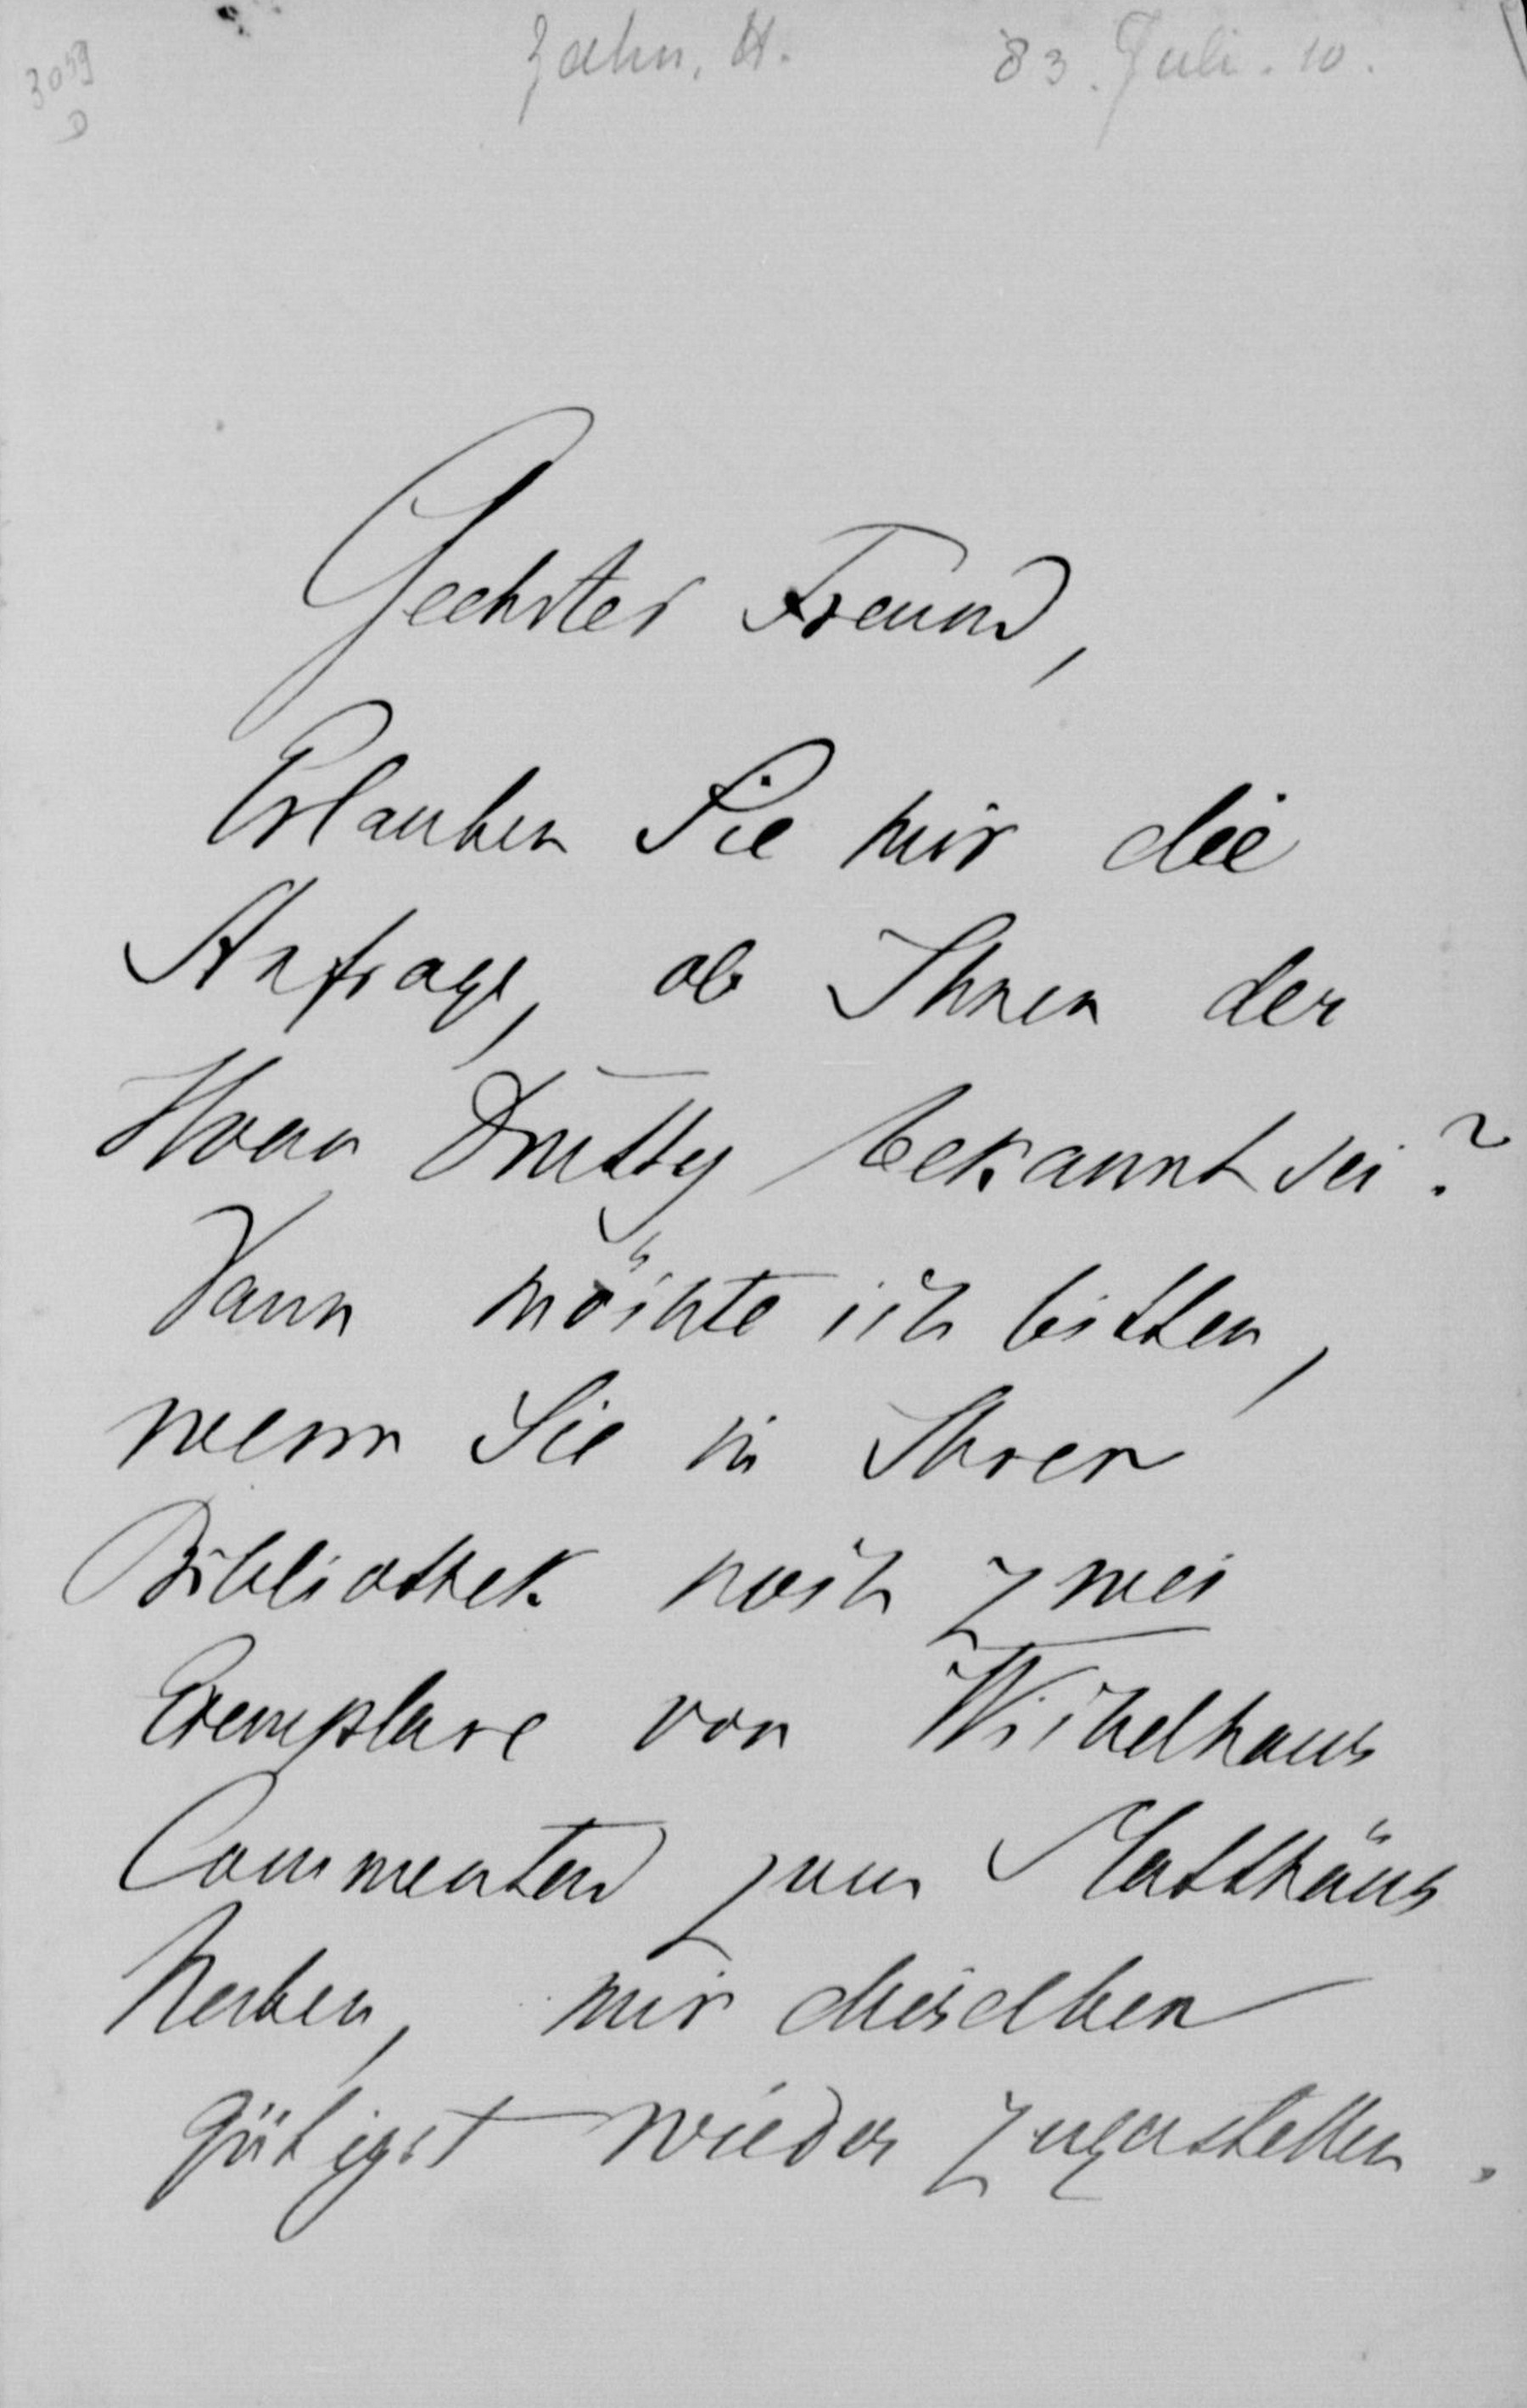 3059
D
Zahn, A. 83. Juli. 10.
Geehrter Freund,
Erlauben Sie mir die
Anfrage, ob Ihnen der
bekannt sei?
Dann möchte ich bitten,
wenn Sie in Ihrer
Bibliothek noch zwei
Exemplare von Wichelhaus
Commentar zum Matthäus
haben, mir dieselben
gütigst wieder zuzustellen.